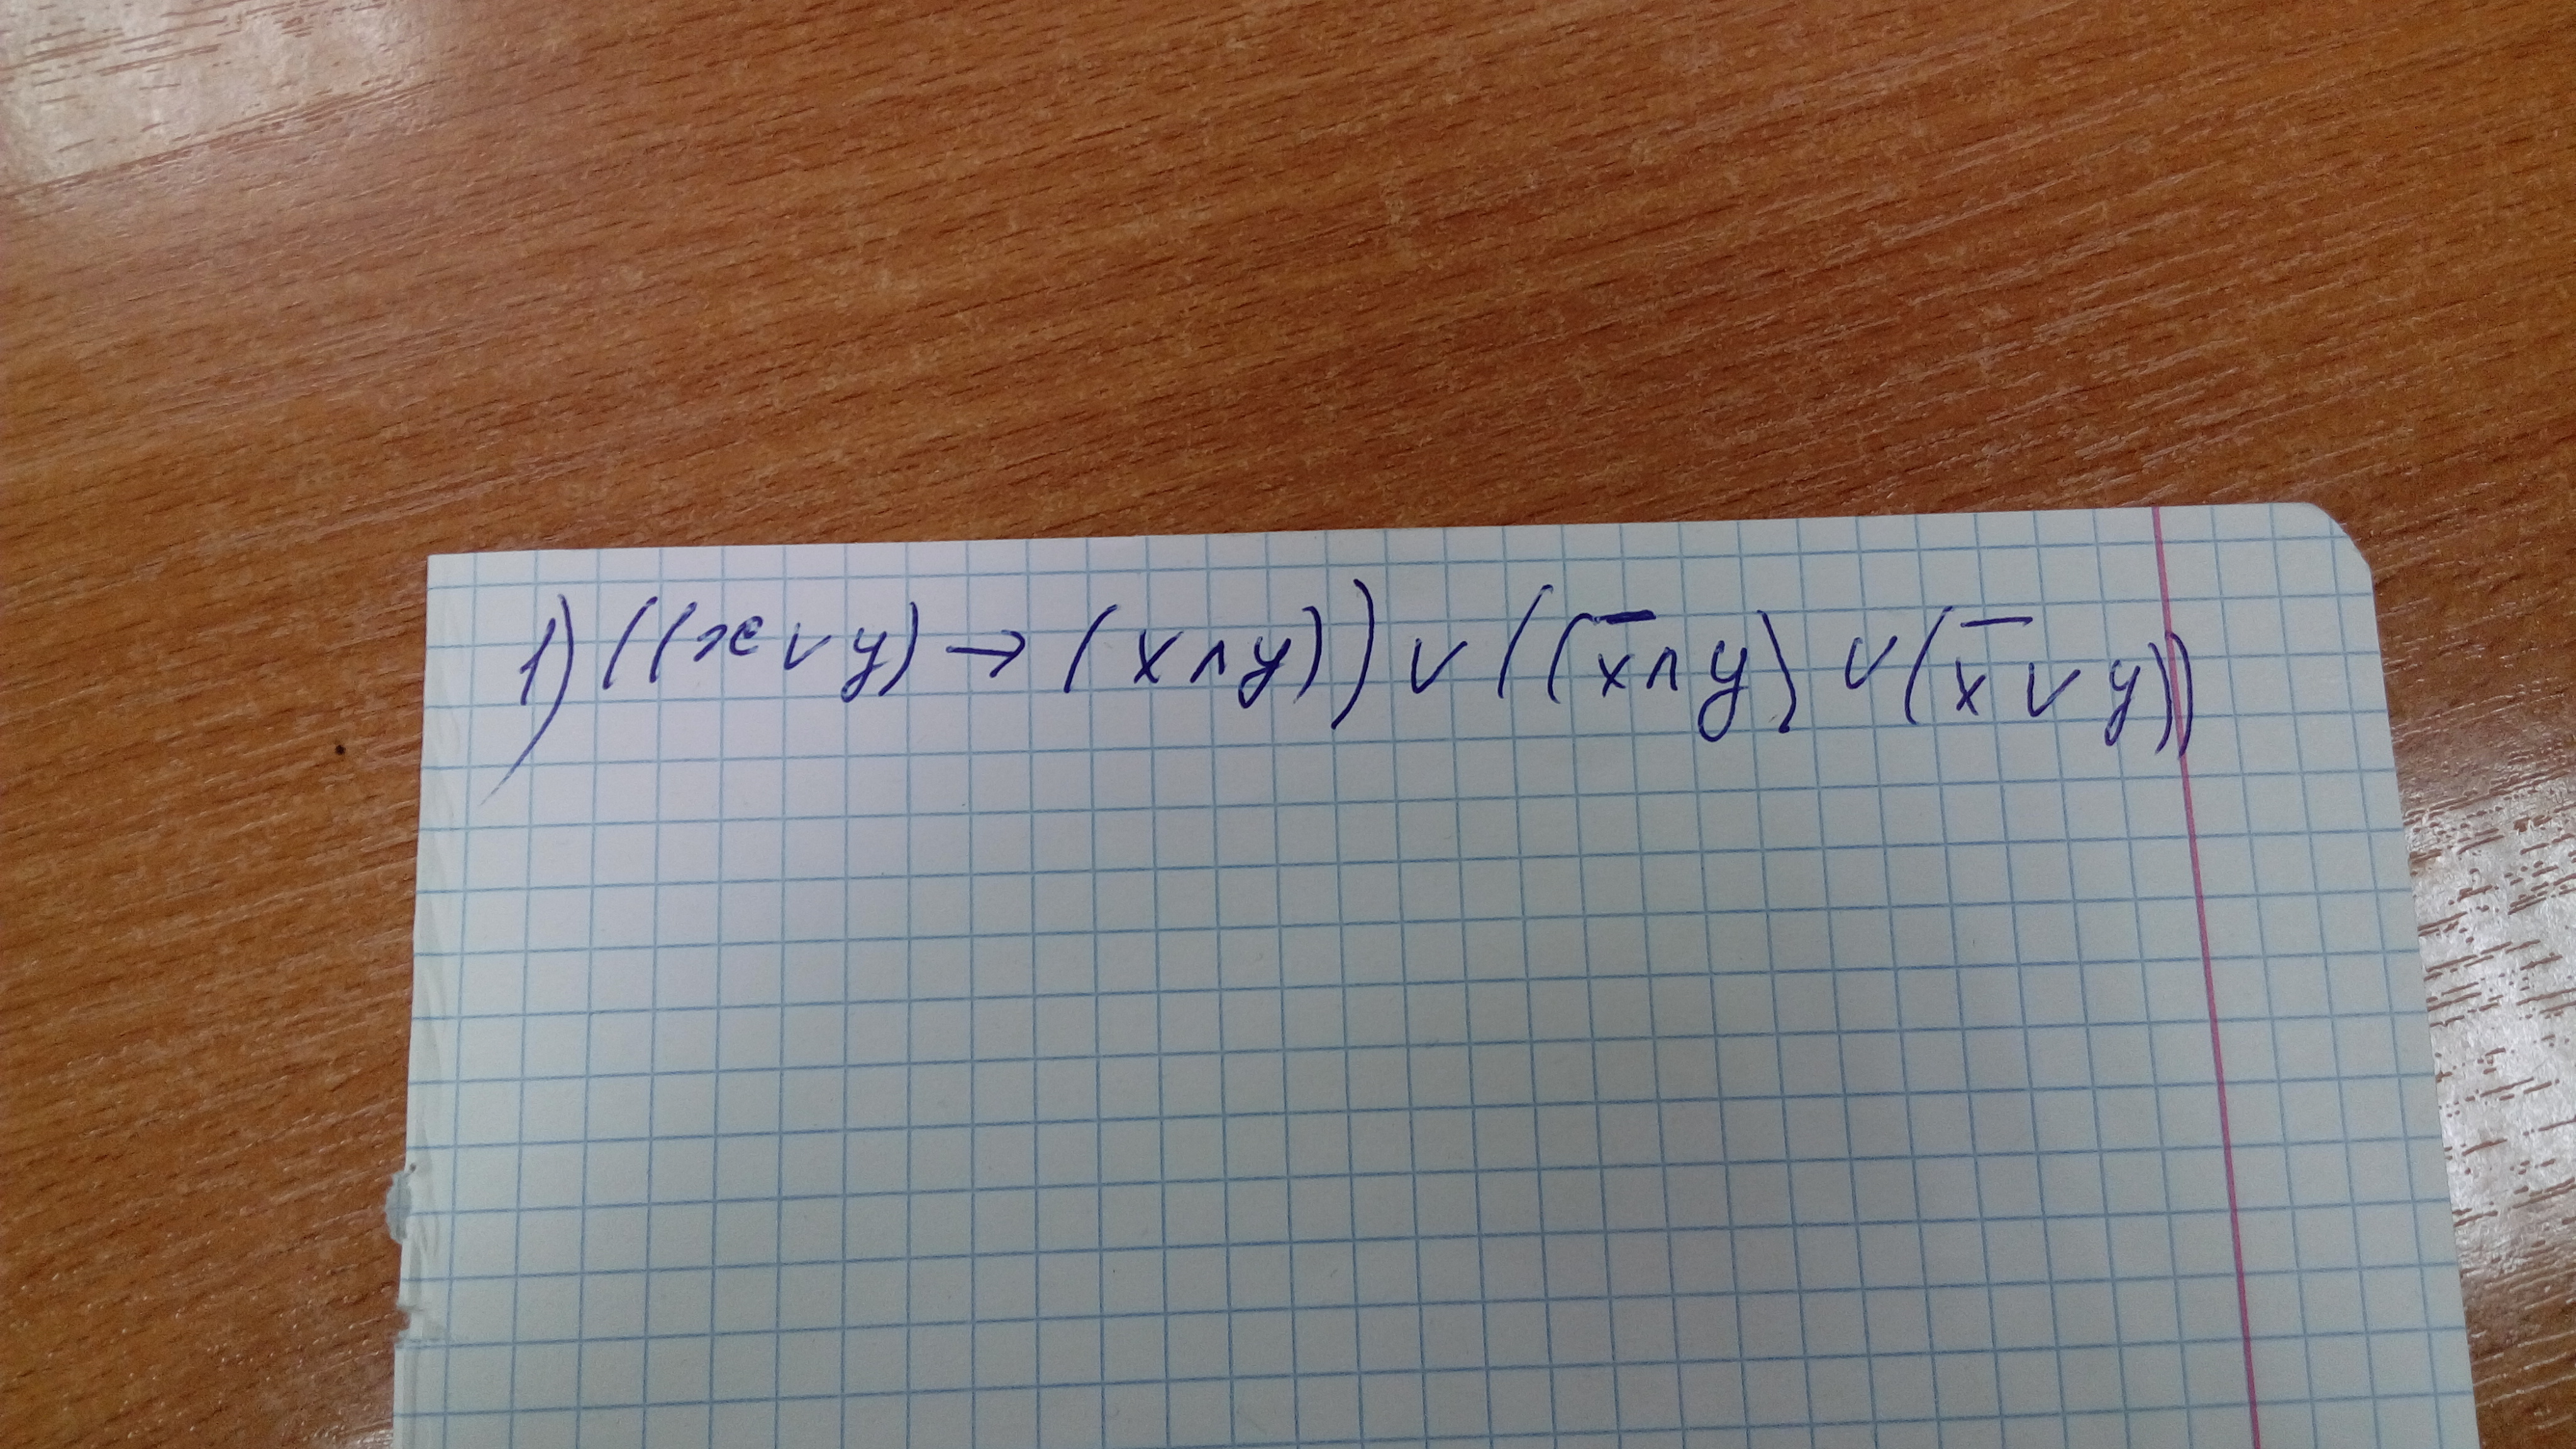 1) ((x∨y) → (x∧y)) ∨ ((x̅∧y) ∨ (x̅∨y))